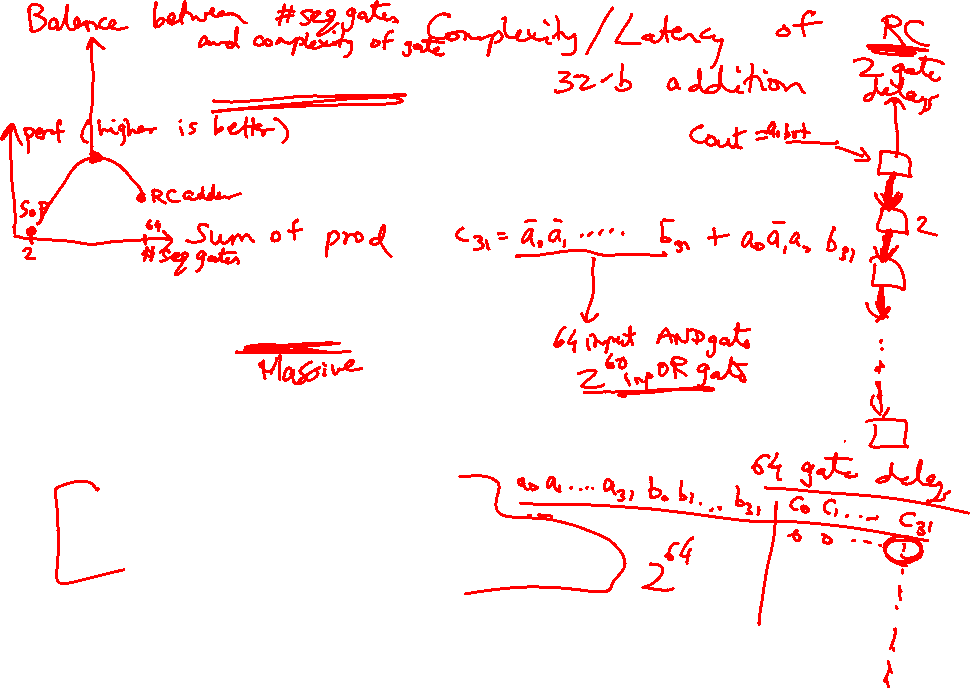 Balance between # seq gates
and complexity of gate
Complexity / Latency of RC
32-b addition
2 gate
delays
perf (higher is better)
Cout =
RC adder
SOP
2
64
# seq gates
Sum of prod
c31 = ā0 ā1 ...... b̄31 + a0 ā1 a2 b31
2
64 input AND gate
2^60 inp OR gate
Massive
64 gate delays
a0 a1 .... a31 b0 b1 ... b31
c0 c1 .... c31
0 0 ...
2^64